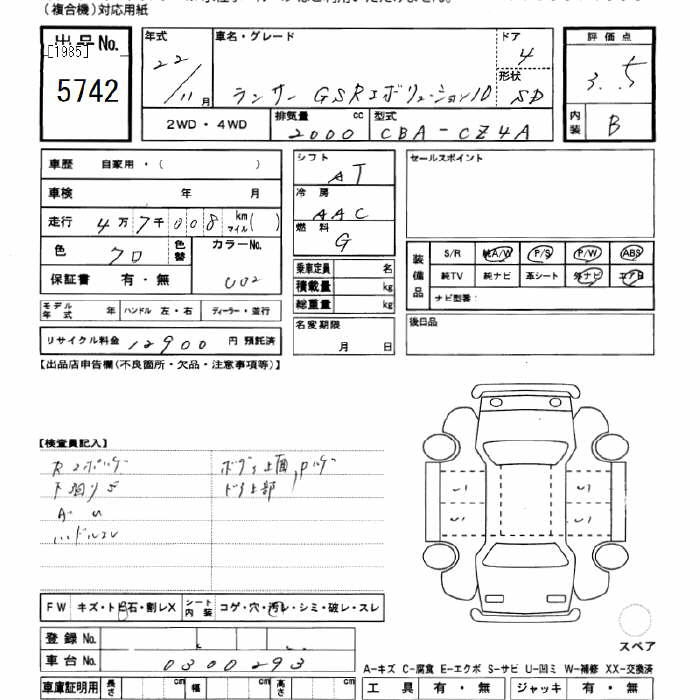 (複合機)対応用紙
出品No.
[1985]
5742
年式
22/11月
車名・グレード
ランサー GSRエボリューション10
ドア
4
形状
SD
評価点
3.5
内装
B
2WD・4WD
排気量 cc
2000
型式
CBA-CZ4A
車歴 自家用・( )
車検 年 月
走行 4万7千008 km マイル( )
色 クロ 色替
カラーNo.
U02
保証書 有・無
モデル年式 年 ハンドル 左・右 ディーラー・並行
リサイクル料金 12900 円 預託済
シフト
AT
冷房
AAC
燃料
G
乗車定員 名
積載量 kg
総重量 kg
名変期限
月 日
セールスポイント
装備品
S/R 純A/W P/S P/W ABS
純TV 純ナビ 革シート 外ナビ エアB
ナビ型番:
後日品
【出品店申告欄(不良箇所・欠品・注意事項等)】
【検査員記入】
ハンドルスレ
FW キズ・トビ石・割レX シート内装 コゲ・穴・汚レ・シミ・破レ・スレ
登録No.
車台No. 0300293
車庫証明用 長さ cm 幅 cm 高さ cm
スペア
A-キズ C-腐食 E-エクボ S-サビ U-凹ミ W-補修 XX-交換済
工具 有・無 ジャッキ 有・無